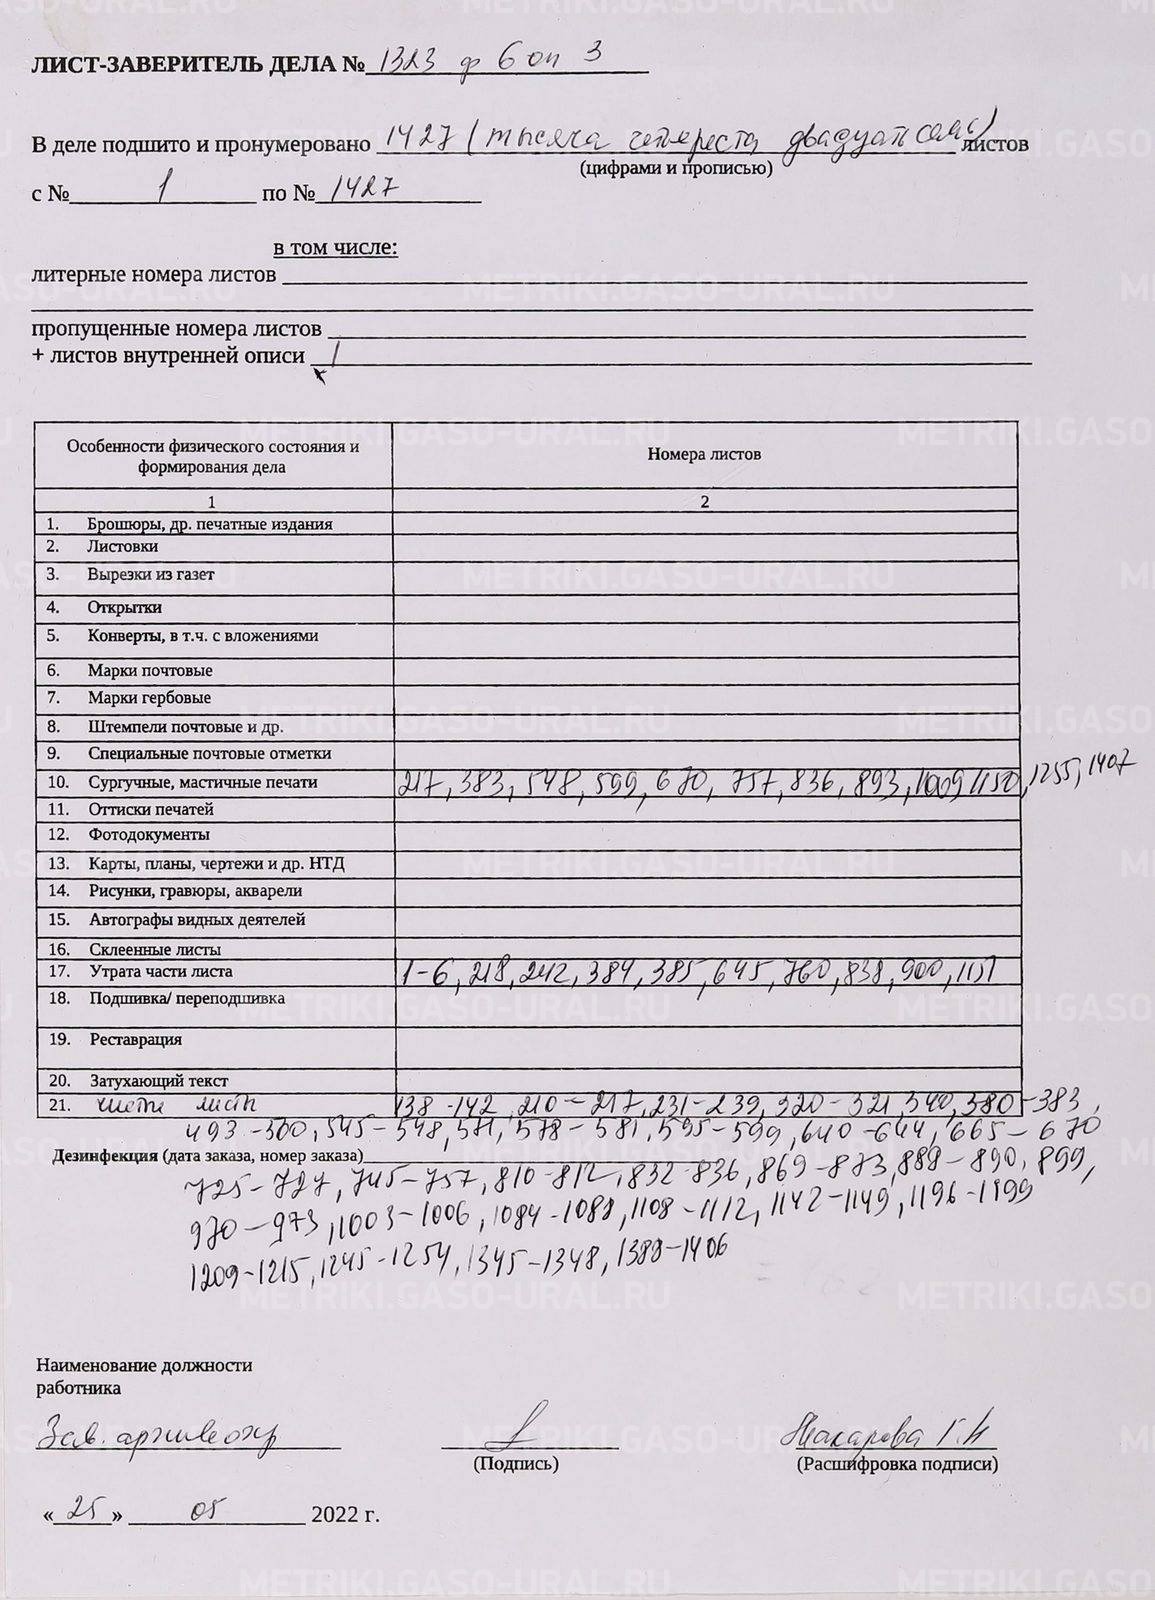 ЛИСТ-ЗАВЕРИТЕЛЬ ДЕЛА № 1323 ф 6 оп 3
В деле подшито и пронумеровано 1427 (тысяча четыреста двадцать семь) листов
(цифрами и прописью)
с № 1 по № 1427
в том числе:
литерные номера листов
пропущенные номера листов
+ листов внутренней описи 1
Особенности физического состояния и формирования дела
Номера листов
1 2
1. Брошюры, др. печатные издания
2. Листовки
3. Вырезки из газет
4. Открытки
5. Конверты, в т.ч. с вложениями
6. Марки почтовые
7. Марки гербовые
8. Штемпели почтовые и др.
9. Специальные почтовые отметки
10. Сургучные, мастичные печати 217, 383, 548, 599, 670, 757, 836, 893, 1009, 1150, 1255, 1407
11. Оттиски печатей
12. Фотодокументы
13. Карты, планы, чертежи и др. НТД
14. Рисунки, гравюры, акварели
15. Автографы видных деятелей
16. Склеенные листы
17. Утрата части листа 1-6, 218, 242, 384, 385, 645, 760, 838, 900, 1151
18. Подшивка/ переподшивка
19. Реставрация
20. Затухающий текст
21. чистые листы 138-142, 210-217, 231-239, 320-321, 340, 380-383,
493-500, 545-548, 571, 578-581, 595-599, 640-644, 665-670
Дезинфекция (дата заказа, номер заказа)
725-727, 745-757, 810-812, 832-836, 869-873, 888-890, 899,
970-973, 1003-1006, 1084-1088, 1108-1112, 1142-1149, 1196-1199
1209-1215, 1245-1254, 1345-1348, 1388-1406
Наименование должности
работника
Зав. архивохр Макарова Г.Н
(Подпись) (Расшифровка подписи)
« 25 » 05 2022 г.
METRIKI.GASO-URAL.RU